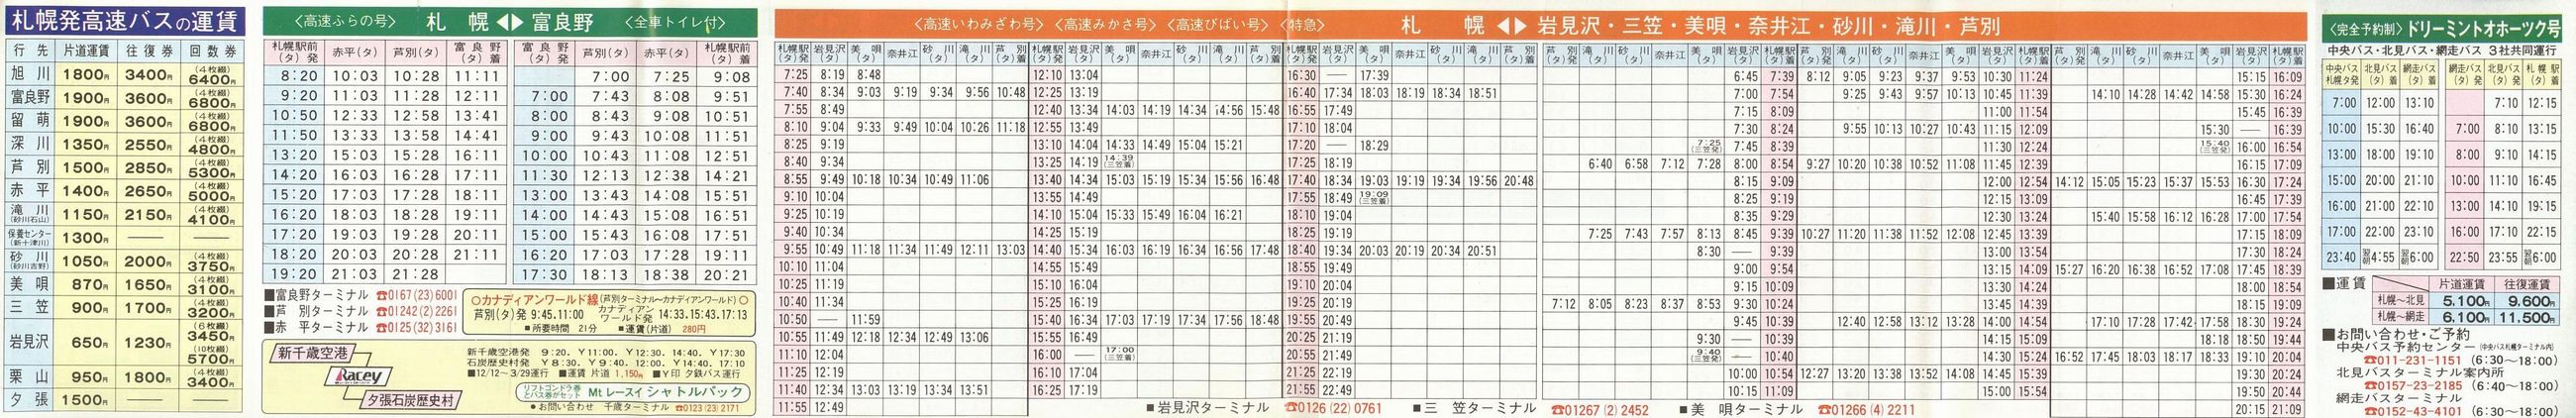 札幌発高速バスの運賃
行先 片道運賃 往復券 回数券
旭川 1800円 3400円 (4枚綴) 6400円
富良野 1900円 3600円 (4枚綴) 6800円
留萌 1900円 3600円 (4枚綴) 6800円
深川 1350円 2550円 (4枚綴) 4800円
芦別 1500円 2850円 (4枚綴) 5300円
赤平 1400円 2650円 (4枚綴) 5000円
滝川 (砂川石山) 1150円 2150円 (4枚綴) 4100円
保養センター (新十津川) 1300円 — —
砂川 (砂川吉野) 1050円 2000円 (4枚綴) 3750円
美唄 870円 1650円 (4枚綴) 3100円
三笠 900円 1700円 (4枚綴) 3200円
岩見沢 650円 1230円 (6枚綴) 3450円 (10枚綴) 5700円
栗山 950円 1800円 (4枚綴) 3400円
夕張 1500円 — —
〈高速ふらの号〉 札幌◀▶富良野 〈全車トイレ付〉
札幌駅前(タ)発 赤平(タ) 芦別(タ) 富良野(タ)着
8:20 10:03 10:28 11:11
9:20 11:03 11:28 12:11
10:50 12:33 12:58 13:41
11:50 13:33 13:58 14:41
13:20 15:03 15:28 16:11
14:20 16:03 16:28 17:11
15:20 17:03 17:28 18:11
16:20 18:03 18:28 19:11
17:20 19:03 19:28 20:11
18:20 20:03 20:28 21:11
19:20 21:03 21:28
富良野(タ)発 芦別(タ) 赤平(タ) 札幌駅前(タ)着
7:00 7:25 9:08
7:00 7:43 8:08 9:51
8:00 8:43 9:08 10:51
9:00 9:43 10:08 11:51
10:00 10:43 11:08 12:51
11:30 12:13 12:38 14:21
13:00 13:43 14:08 15:51
14:00 14:43 15:08 16:51
15:00 15:43 16:08 17:51
16:20 17:03 17:28 19:11
17:30 18:13 18:38 20:21
■富良野ターミナル ☎0167(23)6001
■芦別ターミナル ☎01242(2)2261
■赤平ターミナル ☎0125(32)3161
○カナディアンワールド線(芦別ターミナル〜カナディアンワールド)○
芦別(タ)発 9:45.11:00 カナディアンワールド発 14:33.15:43.17:13
■所要時間 21分 ■運賃(片道) 280円
新千歳空港
Racey
夕張石炭歴史村
新千歳空港発 9:20. Y11:00. Y12:30. 14:40. Y17:30
石炭歴史村発 Y8:30. Y9:40. 12:00. Y14:40. 17:10
■12/12〜3/29運行 ■運賃 片道 1,150円 ■Y印 夕鉄バス運行
リフトゴンドラ券とバス券がセット Mtレースイシャトルパック
●お問い合わせ 千歳ターミナル ☎0123(23)2171
〈高速いわみざわ号〉〈高速みかさ号〉〈高速びばい号〉〈特急〉 札幌◀▶岩見沢・三笠・美唄・奈井江・砂川・滝川・芦別
札幌駅(タ)発 岩見沢(タ) 美唄(タ) 奈井江 砂川(タ) 滝川(タ) 芦別(タ)着
7:25 8:19 8:48
7:40 8:34 9:03 9:19 9:34 9:56 10:48
7:55 8:49
8:10 9:04 9:33 9:49 10:04 10:26 11:18
8:25 9:19
8:40 9:34
8:55 9:49 10:18 10:34 10:49 11:06
9:10 10:04
9:25 10:19
9:40 10:34
9:55 10:49 11:18 11:34 11:49 12:11 13:03
10:10 11:04
10:25 11:19
10:40 11:34
10:50 — 11:59
10:55 11:49 12:18 12:34 12:49 13:06
11:10 12:04
11:25 12:19
11:40 12:34 13:03 13:19 13:34 13:51
11:55 12:49
札幌駅(タ)発 岩見沢(タ) 美唄(タ) 奈井江 砂川(タ) 滝川(タ) 芦別(タ)着
12:10 13:04
12:25 13:19
12:40 13:34 14:03 14:19 14:34 14:56 15:48
12:55 13:49
13:10 14:04 14:33 14:49 15:04 15:21
13:25 14:19 14:39(三笠着)
13:40 14:34 15:03 15:19 15:34 15:56 16:48
13:55 14:49
14:10 15:04 15:33 15:49 16:04 16:21
14:25 15:19
14:40 15:34 16:03 16:19 16:34 16:56 17:48
14:55 15:49
15:10 16:04
15:25 16:19
15:40 16:34 17:03 17:19 17:34 17:56 18:48
15:55 16:49
16:00 — 17:00(三笠着)
16:10 17:04
16:25 17:19
札幌駅(タ)発 岩見沢(タ) 美唄(タ) 奈井江 砂川(タ) 滝川(タ) 芦別(タ)着
16:30 — 17:39
16:40 17:34 18:03 18:19 18:34 18:51
16:55 17:49
17:10 18:04
17:20 — 18:29
17:25 18:19
17:40 18:34 19:03 19:19 19:34 19:56 20:48
17:55 18:49 19:09(三笠着)
18:10 19:04
18:25 19:19
18:40 19:34 20:03 20:19 20:34 20:51
18:55 19:49
19:10 20:04
19:25 20:19
19:55 20:49
20:25 21:19
20:55 21:49
21:25 22:19
21:55 22:49
芦別(タ)発 滝川(タ) 砂川(タ) 奈井江 美唄(タ) 岩見沢(タ) 札幌駅(タ)着
6:45 7:39
7:00 7:54
7:15 8:09
7:30 8:24
7:25(三笠発) 7:45 8:39
6:40 6:58 7:12 7:28 8:00 8:54
8:15 9:09
8:25 9:19
8:35 9:29
7:25 7:43 7:57 8:13 8:45 9:39
8:30 — 9:39
9:00 9:54
9:15 10:09
7:12 8:05 8:23 8:37 8:53 9:30 10:24
9:45 10:39
9:30 — 10:39
9:40(三笠発) — 10:40
10:00 10:54
10:15 11:09
芦別(タ)発 滝川(タ) 砂川(タ) 奈井江 美唄(タ) 岩見沢(タ) 札幌駅(タ)着
8:12 9:05 9:23 9:37 9:53 10:30 11:24
9:25 9:43 9:57 10:13 10:45 11:39
11:00 11:54
9:55 10:13 10:27 10:43 11:15 12:09
11:30 12:24
9:27 10:20 10:38 10:52 11:08 11:45 12:39
12:00 12:54
12:15 13:09
12:30 13:24
10:27 11:20 11:38 11:52 12:08 12:45 13:39
13:00 13:54
13:15 14:09
13:30 14:24
13:45 14:39
12:40 12:58 13:12 13:28 14:00 14:54
14:15 15:09
14:30 15:24
12:27 13:20 13:38 13:52 14:08 14:45 15:39
15:00 15:54
芦別(タ)発 滝川(タ) 砂川(タ) 奈井江 美唄(タ) 岩見沢(タ) 札幌駅(タ)着
15:15 16:09
14:10 14:28 14:42 14:58 15:30 16:24
15:45 16:39
15:30 — 16:39
15:40(三笠発) 16:00 16:54
16:15 17:09
14:12 15:05 15:23 15:37 15:53 16:30 17:24
16:45 17:39
15:40 15:58 16:12 16:28 17:00 17:54
17:15 18:09
17:30 18:24
15:27 16:20 16:38 16:52 17:08 17:45 18:39
18:00 18:54
18:15 19:09
17:10 17:28 17:42 17:58 18:30 19:24
18:18 18:50 19:44
16:52 17:45 18:03 18:17 18:33 19:10 20:04
19:30 20:24
19:50 20:44
20:15 21:09
■岩見沢ターミナル ☎0126(22)0761 ■三笠ターミナル ☎01267(2)2452 ■美唄ターミナル ☎01266(4)2211
〈完全予約制〉ドリーミントオホーツク号
中央バス・北見バス・網走バス 3社共同運行
中央バス札幌(タ)発 北見バス(タ)着 網走バス(タ)着
7:00 12:00 13:10
10:00 15:30 16:40
13:00 18:00 19:10
15:00 20:00 21:10
16:00 21:00 22:10
17:00 22:00 23:10
23:40 翌朝4:55 翌朝6:00
網走バス(タ)発 北見バス(タ)発 札幌駅(タ)着
7:10 12:15
7:00 8:10 13:15
8:00 9:10 14:15
10:00 11:10 16:45
13:00 14:10 19:15
16:00 17:10 22:15
22:50 23:55 翌朝6:00
■運賃 片道運賃 往復運賃
札幌〜北見 5,100円 9,600円
札幌〜網走 6,100円 11,500円
■お問い合わせ・ご予約
中央バス予約センター(中央バス札幌ターミナル内)
☎011-231-1151 (6:30〜18:00)
北見バスターミナル案内所
☎0157-23-2185 (6:40〜18:00)
網走バスターミナル
☎0152-43-4101 (6:30〜18:00)